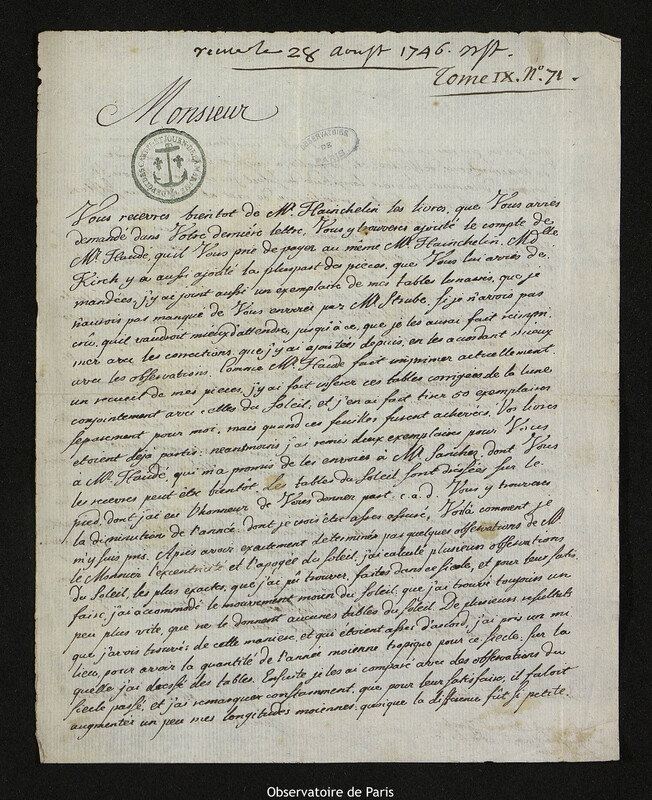 reçue le 28 Aoust 1746. nst.
Tome IX. N.º 71.
Monsieur
OBSERVATOIRE
DE
PARIS
Vous recevres bientot de Mr. Hainchelin les livres, que Vous aves
demandé dans Votre derniere lettre, Vous y trouveres ajouté le compte de
Mr. Haude, qu'il Vous prie de payer au même Mr. Hainchelin. Mdlle
Kirch y a aussi ajouté la pluspart des pieces, que Vous lui avies de-
mandées; j'y ai joint aussi un exemplaire de mes tables lunaires, que je
n'aurois pas manqué de Vous envoier par Mr. Strube, si je n'avois pas
crû, qu'il vaudroit mieux d'attendre, jusqu'à ce, que je les aurai fait réimpri-
mer avec les corrections, que j'y ai ajoutées depuis, en les acordant mieux
avec les observations. Comme Mr. Haude fait imprimer actuellement
un recueil de mes pieces, j'y ai fait inserer ces tables corrigées de la lune
conjointement avec celles du Soleil, et j'en ai fait tirer 50 exemplaires
separement pour moi, mais quand ces feuilles fusent achevées, Vos livres
etoient deja partis: neantmoins j'ai remis deux exemplaires pour Vous
a Mr. Haude, qui m'a promis de les envoier à Mr. Sanchez, dont Vous
les recevres peut être bientôt. Les tables du Soleil sont dressées sur le
pied, dont j'ai eu l'honneur de Vous donner part, c. a. d. Vous y trouveres
la diminution de l'année, dont je crois être asses assuré. Voilà comment je
m'y suis pris. Après avoir exactement determinés par quelques observations de Mr.
le Monnier l'excentricité et l'apogée du Soleil, j'ai calculé plusieurs observations
du Soleil, les plus exactes, que j'ai pû trouver, faites dans ce siecle, et pour leur satis-
faire, j'ai accommodé le mouvement moien du Soleil, que j'ai trouvé toujours un
peu plus vite, que ne le donnent aucunes tables du Soleil. De plusieurs resultats
que j'avois trouvés de cette maniere, et qui etoient asses d'acord, j'ai pris un mi-
lieu, pour avoir la quantité de l'année moienne tropique pour ce siecle, sur la
quelle j'ai dressé des tables. Ensuite je les ai comparé avec des observations du
siecle passé, et j'ai remarqué constamment, que pour leur satisfaire, il faloit
augmenter un peu mes longitudes moiennes: quoique la difference fût si petite,
Observatoire de Paris